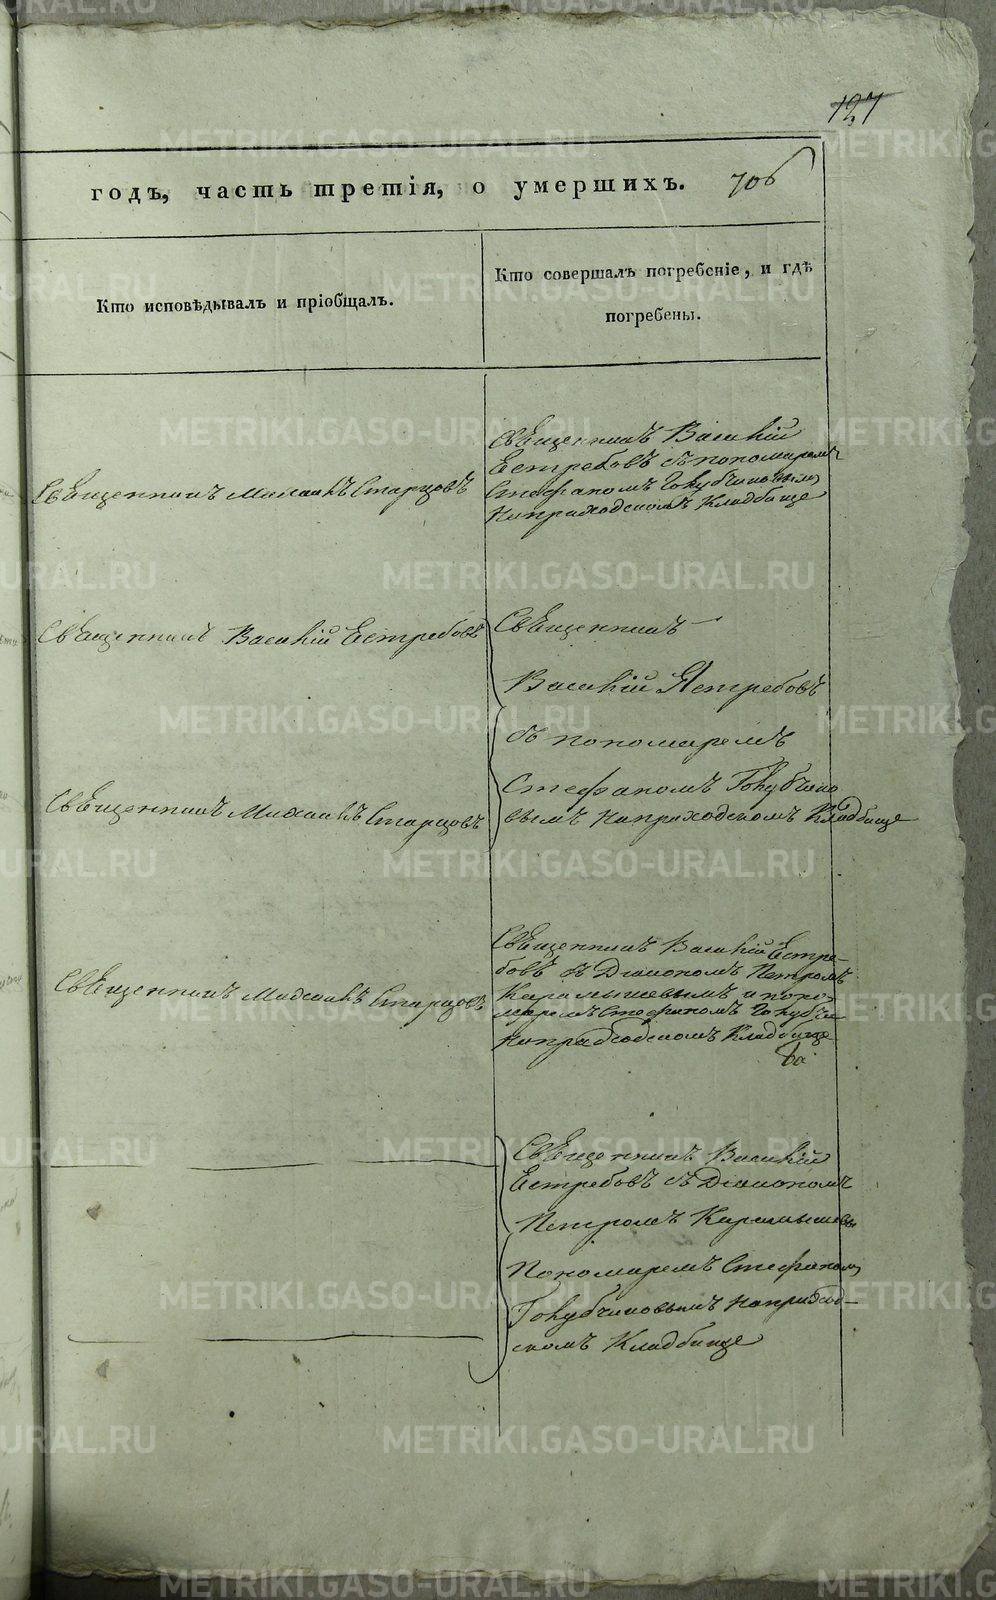 127
годъ, часть третія, о умершихъ. 706
Кто исповѣдывалъ и пріобщалъ.
Кто совершалъ погребеніе, и гдѣ
погребены.
Священникъ Михаилъ Старцовъ
Священникъ Василій
Естребовъ съ пономаремъ
Стефаномъ Голубчиковым
На приходскомъ Кладбище
Священникъ Василій Естребовъ
Священникъ
Василій Ястребовъ
съ пономаремъ
Стефаномъ Голубчико
вымъ на приходскомъ Кладбище
Священникъ Михаилъ Старцовъ
Священникъ Михаилъ Старцовъ
Священникъ Василій Естре-
бовъ съ Діакономъ Петромъ
Карамышевымъ и поно-
маремъ Стефаномъ Голубчи
на приходскомъ Кладбище
Священникъ Василій
Естребовъ съ Діакономъ
Петромъ Карамышевы
Пономаремъ Стефаном
Голубчиковымъ на приход-
скомъ Кладбище
METRIKI.GASO-URAL.RU